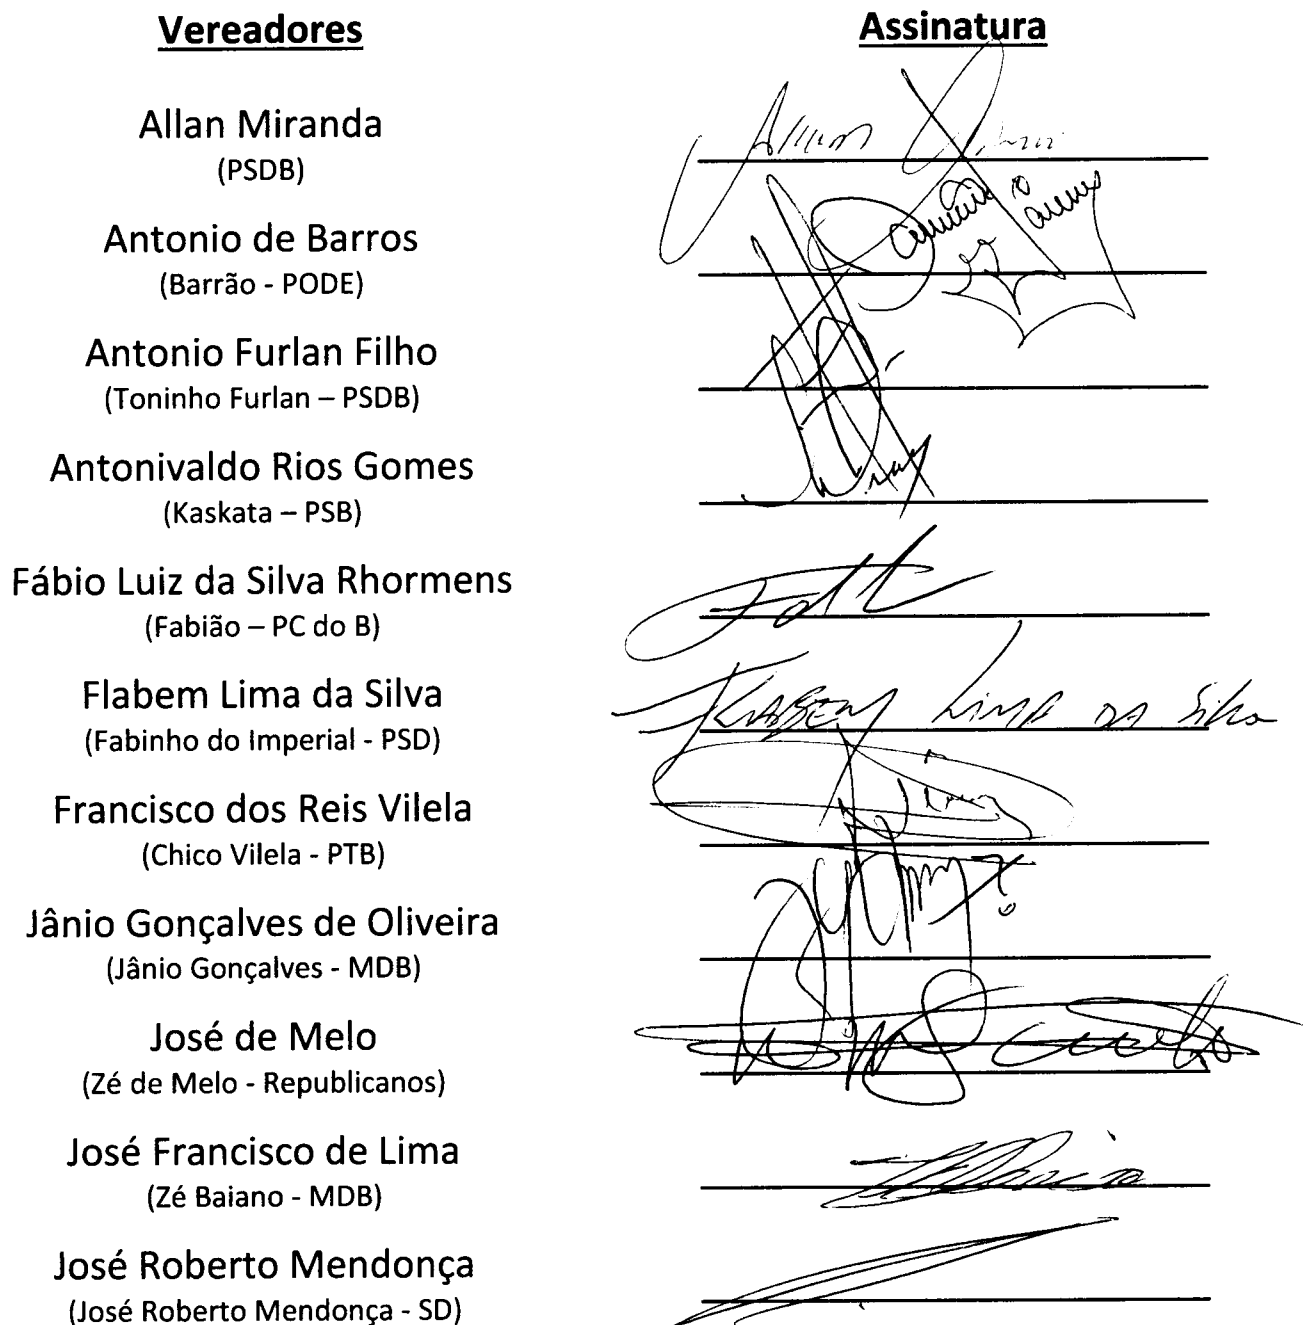 Vereadores Assinatura
Allan Miranda
(PSDB)
Antonio de Barros
(Barrão - PODE)
Antonio Furlan Filho
(Toninho Furlan – PSDB)
Antonivaldo Rios Gomes
(Kaskata – PSB)
Fábio Luiz da Silva Rhormens
(Fabião – PC do B)
Flabem Lima da Silva
(Fabinho do Imperial - PSD)
FLABEM LIMA DA Silva
Francisco dos Reis Vilela
(Chico Vilela - PTB)
Jânio Gonçalves de Oliveira
(Jânio Gonçalves - MDB)
José de Melo
(Zé de Melo - Republicanos)
José Francisco de Lima
(Zé Baiano - MDB)
José Roberto Mendonça
(José Roberto Mendonça - SD)